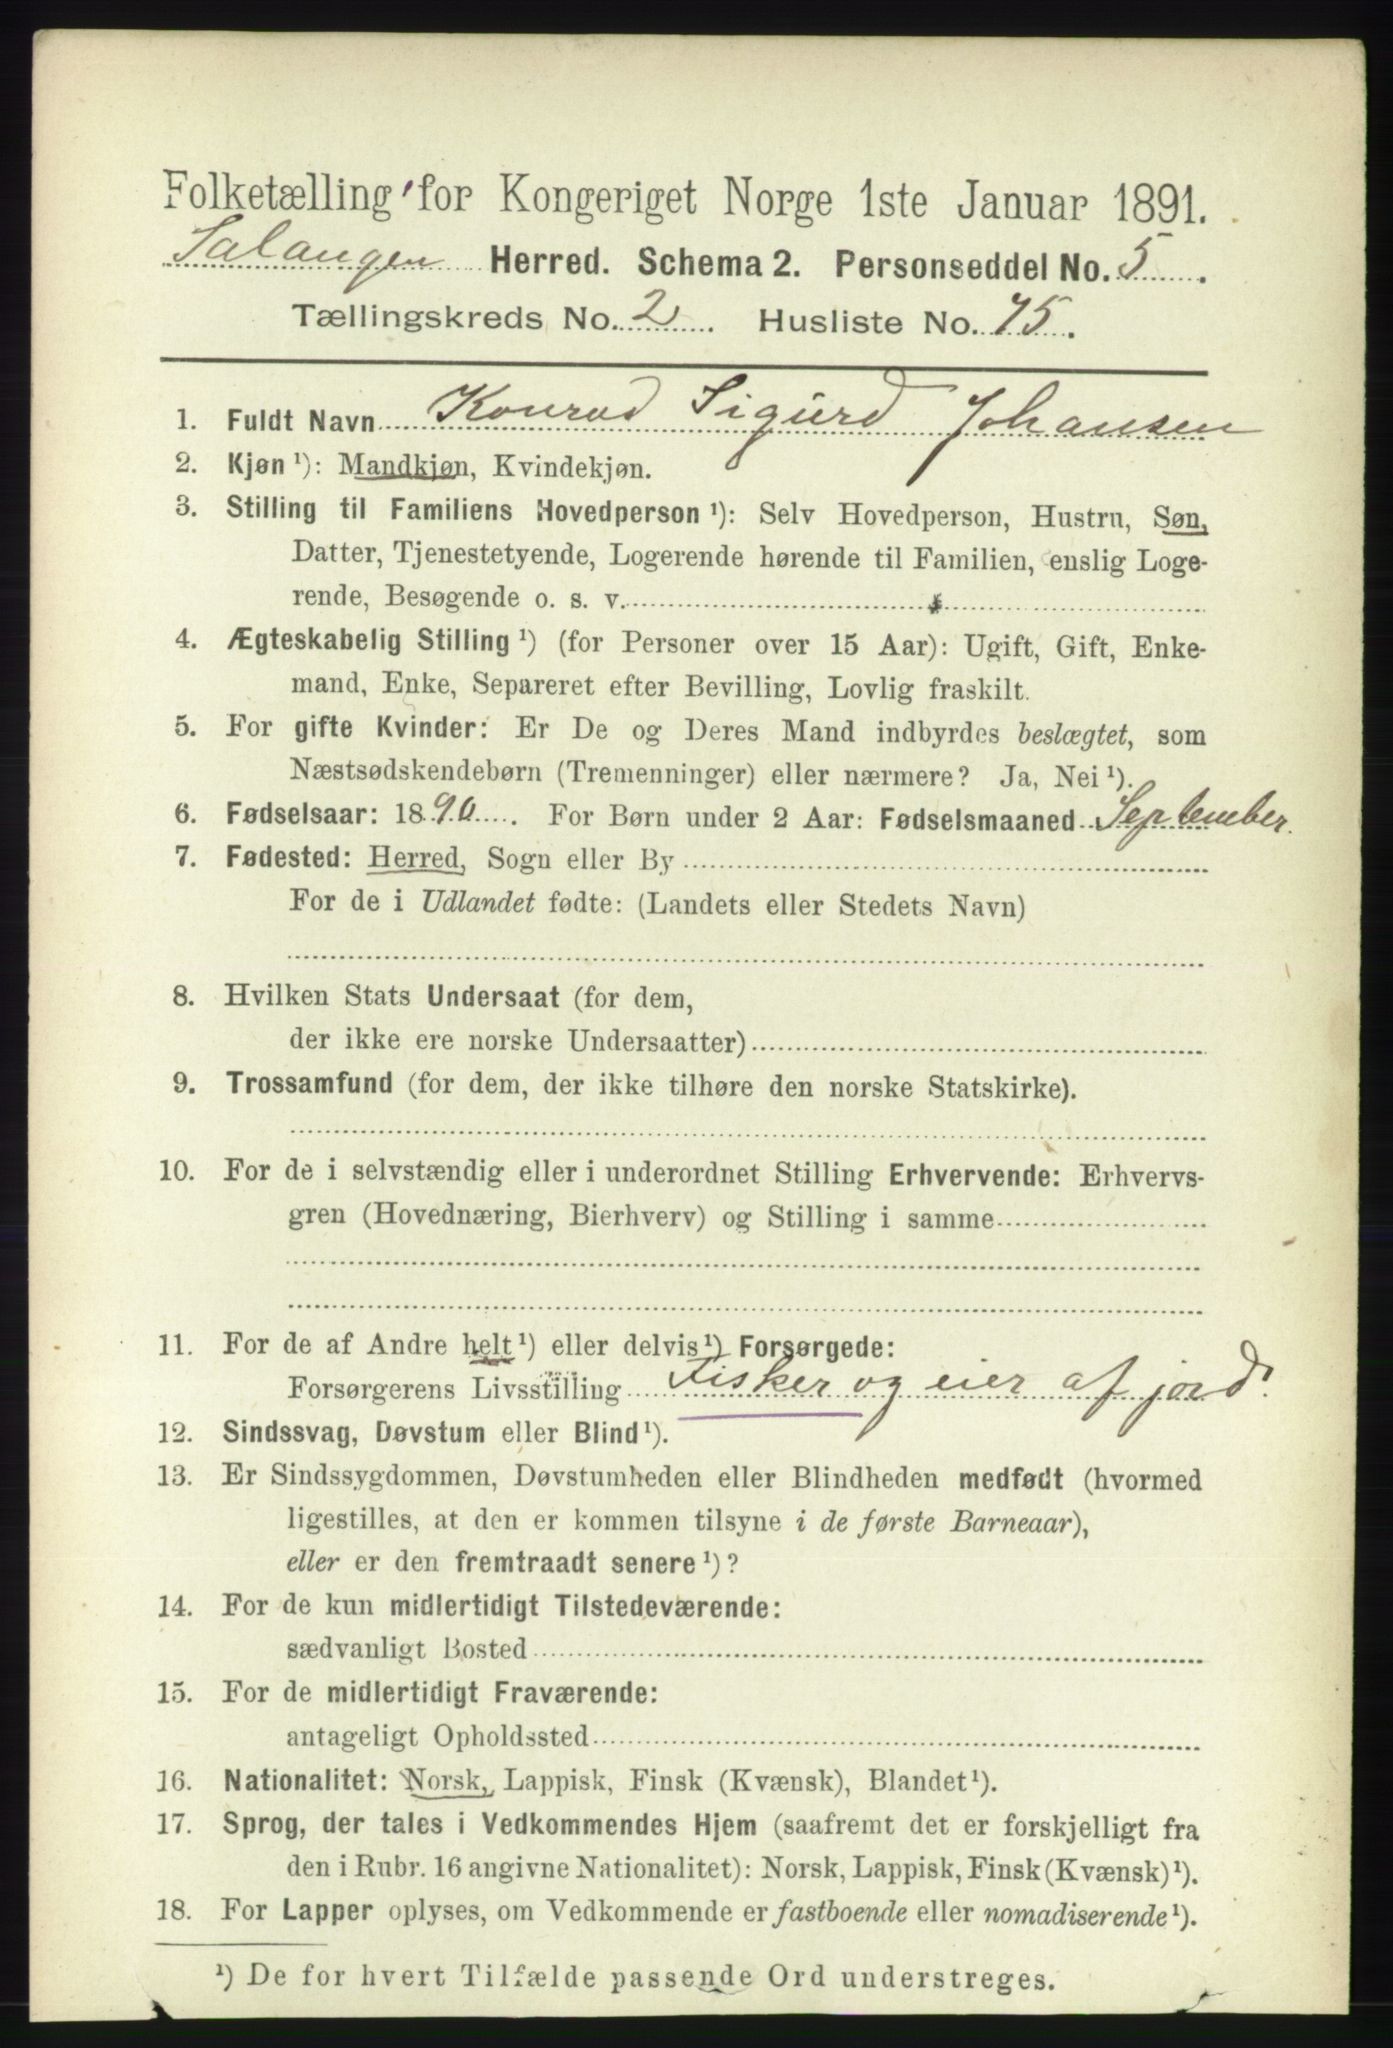 Folketælling for Kongeriget Norge 1ste Januar 1891.
Salangen Herred. Schema 2. Personseddel No. 5.
Tællingskreds No. 2. Husliste No. 75.
1. Fuldt Navn Konrad Sigurd Johansen
2. Kjøn ¹): Mandkjøn, Kvindekjøn.
3. Stilling til Familiens Hovedperson ¹): Selv Hovedperson, Hustru, Søn,
Datter, Tjenestetyende, Logerende hørende til Familien, enslig Loge-
rende, Besøgende o. s. v.
4. Ægteskabelig Stilling ¹) (for Personer over 15 Aar): Ugift, Gift, Enke-
mand, Enke, Separeret efter Bevilling, Lovlig fraskilt.
5. For gifte Kvinder: Er De og Deres Mand indbyrdes beslægtet, som
Næstsødskendebørn (Tremenninger) eller nærmere? Ja, Nei ¹).
6. Fødselsaar: 1890. For Børn under 2 Aar: Fødselsmaaned September.
7. Fødested: Herred, Sogn eller By
For de i Udlandet fødte: (Landets eller Stedets Navn)
8. Hvilken Stats Undersaat (for dem,
der ikke ere norske Undersaatter)
9. Trossamfund (for dem, der ikke tilhøre den norske Statskirke).
10. For de i selvstændig eller i underordnet Stilling Erhvervende: Erhvervs-
gren (Hovednæring, Bierhverv) og Stilling i samme
11. For de af Andre helt ¹) eller delvis ¹) Forsørgede:
Forsørgerens Livsstilling Fisker og eier af jord.
12. Sindssvag, Døvstum eller Blind ¹).
13. Er Sindssygdommen, Døvstumheden eller Blindheden medfødt (hvormed
ligestilles, at den er kommen tilsyne i de første Barneaar),
eller er den fremtraadt senere ¹)?
14. For de kun midlertidigt Tilstedeværende:
sædvanligt Bosted
15. For de midlertidigt Fraværende:
antageligt Opholdssted
16. Nationalitet: Norsk, Lappisk, Finsk (Kvænsk), Blandet ¹).
17. Sprog, der tales i Vedkommendes Hjem (saafremt det er forskjelligt fra
den i Rubr. 16 angivne Nationalitet): Norsk, Lappisk, Finsk (Kvænsk) ¹).
18. For Lapper oplyses, om Vedkommende er fastboende eller nomadiserende ¹).
¹) De for hvert Tilfælde passende Ord understreges.